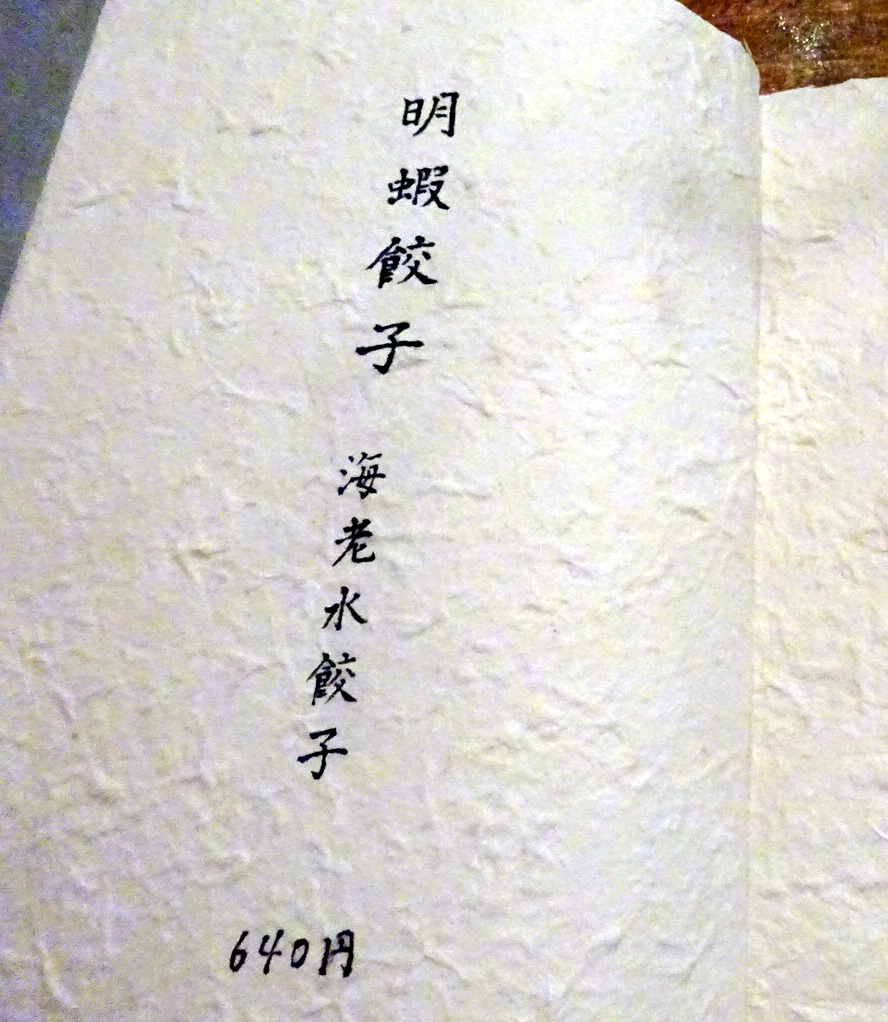 明蝦餃子
海老水餃子
640円